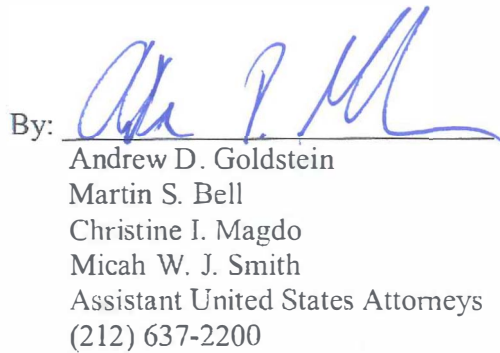 By:
Andrew D. Goldstein
Martin S. Bell
Christine I. Magdo
Micah W. J. Smith
Assistant United States Attorneys
(212) 637-2200